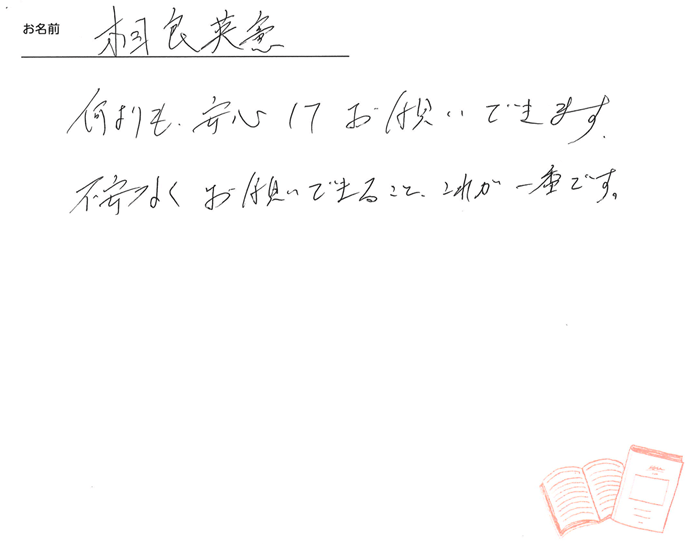 お名前 相良英
何よりも、安心してお願いできます。
不安なくお願いできること、これが一番です。